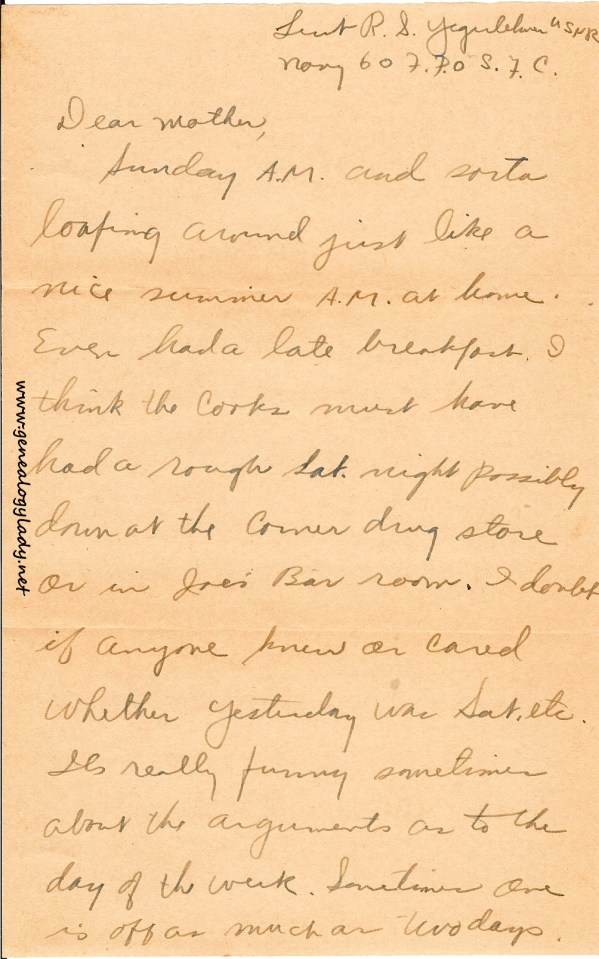 Lieut R. S. Yegerlehner USNR
Navy 60 F.P.O S.F.C.
Dear Mother,
Sunday A.M. and sorta
loafing around just like a
nice summer A.M. at home.
Even had a late breakfast. I
think the Cooks must have
had a rough Sat. night possibly
down at the Corner drug store
or in Joe's Bar room. I doubt
if anyone knew or cared
whether yesterday was Sat, etc.
Its really funny sometimes
about the arguments as to the
day of the week. Sometimes one
is off as much as two days.
www.genealogylady.net